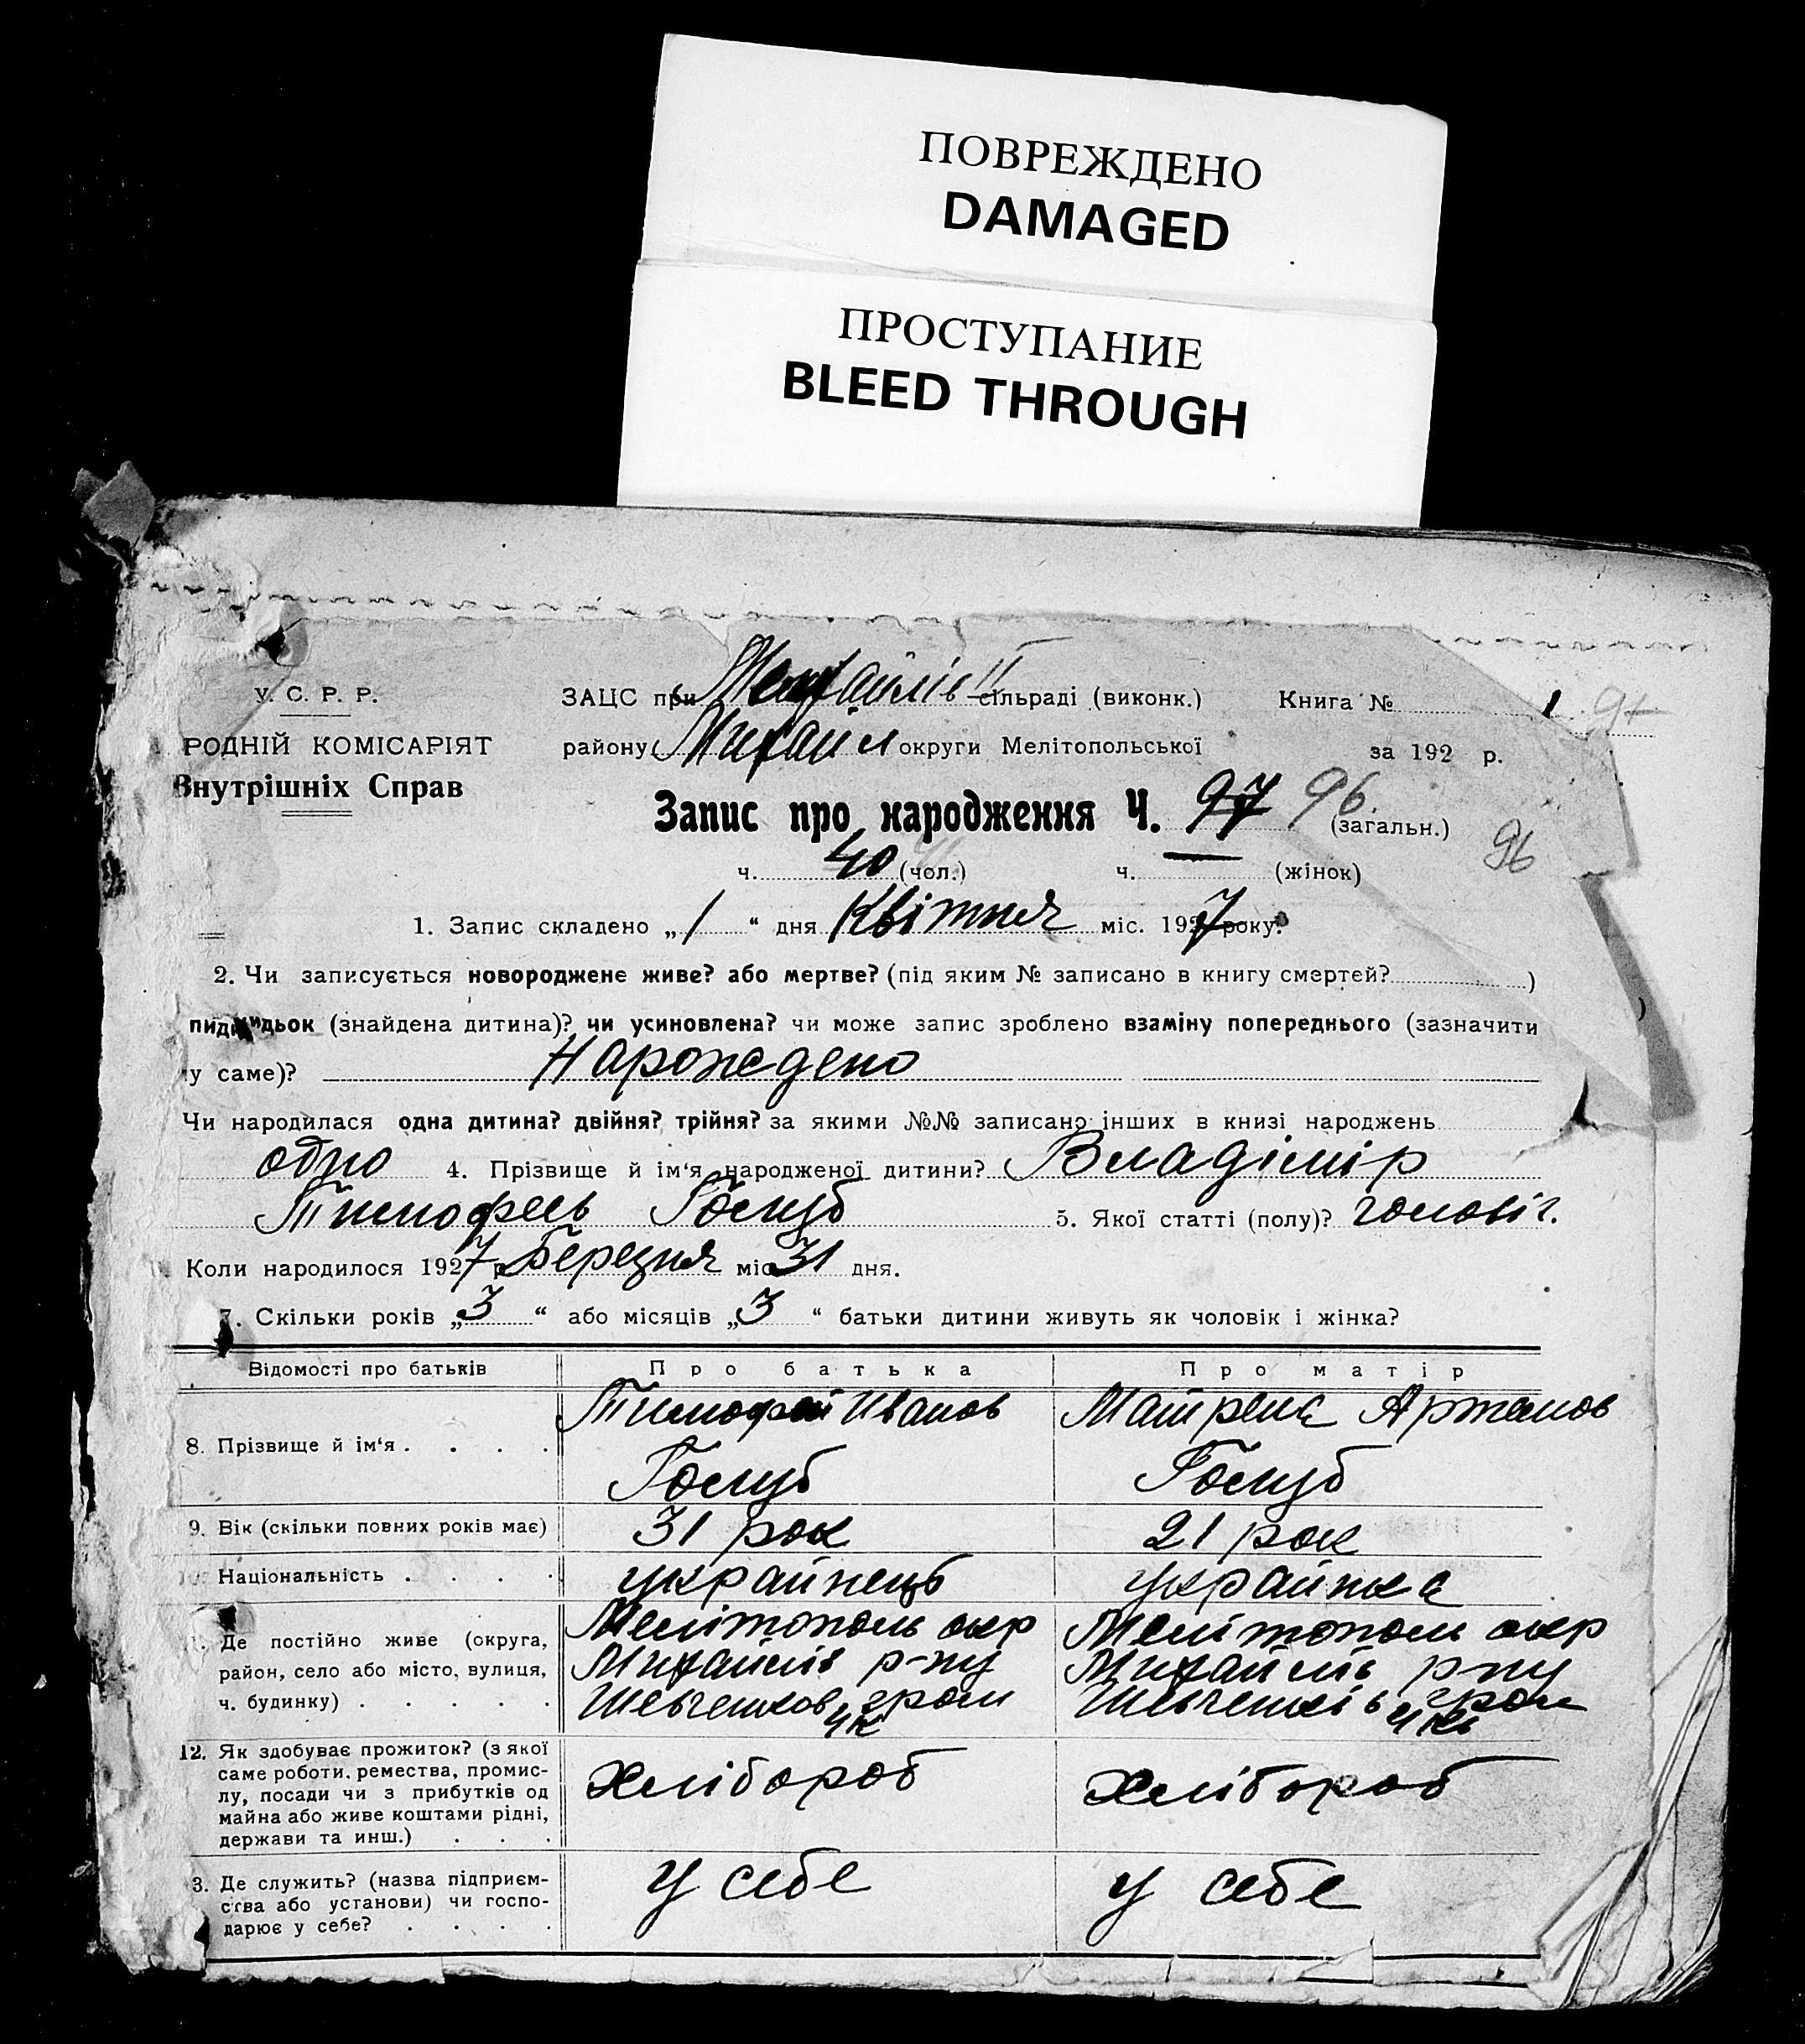 ПОВРЕЖДЕНО
DAMAGED
ПРОСТУПАНИЕ
BLEED THROUGH
У. С. Р. Р.
ЗАЦС при Михайлів II сільраді (виконк.) Книга № 1 97
РОДНІЙ КОМІСАРІЯТ
району Михайл округи Мелітопольської за 192 р.
Внутрішніх Справ
Запис про народження Ч. 97 96. (загальн.)
96
ч. 40 (чол.) ч. — (жінок)
1. Запис складено „1“ дня Квітня міс. 1927 року?
2. Чи записується новороджене живе? або мертве? (під яким № записано в книгу смертей? )
пидкидьок (знайдена дитина)? чи усиновлена? чи може запис зроблено взаміну попереднього (зазначити
у саме)? Нарождено
Чи народилася одна дитина? двійня? трійня? за якими №№ записано інших в книзі народжень
одно 4. Прізвище й ім‘я народженої дитини? Владімір
Тимофеев Голуб 5. Якої статті (полу)? чоловіч.
Коли народилося 1927 р Березня міс 31 дня.
7. Скільки років „3“ або місяців „3“ батьки дитини живуть як чоловік і жінка?
Відомості про батьків Про батька Про матір
Тимофей Иванов Матрена Артамов
8. Прізвище й ім‘я . . . .
Голуб Голуб
9. Вік (скільки повних років має) 31 рок 21 рок
Національність . . . . украйнець украйнка
Мелітополь окр Мелітополь окр
Де постійно живе (округа,
район, село або місто, вулиця, Михайлів р-ну Михайлів р-ну
ч. будинку) . . . . . Шевченков гром Шевченків гром
12. Як здобуває прожиток? (з якої
саме роботи. ремества, промис-
лу, посади чи з прибутків од Хлібороб Хлібороб
майна або живе коштами рідні,
держави та инш.) . . .
3. Де служить? (назва підприєм-
ства або установи) чи госпо- У себе У себе
дарює у себе? . . . .